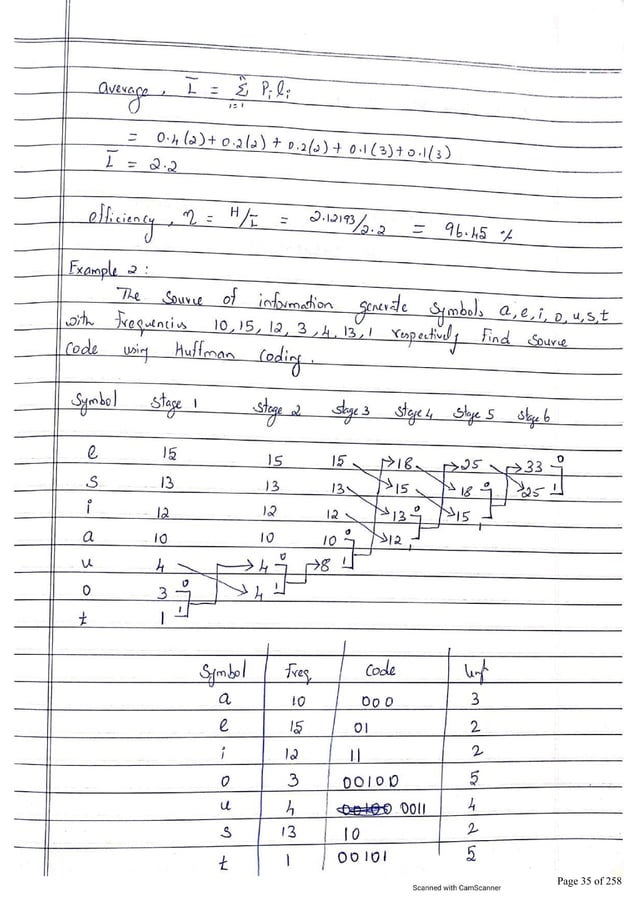 average, L̄ = Σ Pᵢlᵢ
n
i=1
= 0.4(2)+0.2(2) + 0.2(2) + 0.1(3)+0.1(3)
L̄ = 2.2
efficiency, η = H/L̄ = 2.12193/2.2 = 96.45 %
Example 2:
The source of information generate symbols a,e,i,o,u,s,t
with frequencius 10,15,12,3,4,13,1 respectively Find source
code using Huffman coding.
Symbol Stage 1 Stage 2 Stage 3 Stage 4 Stage 5 Stage 6
e 15 15 15 18 25 33 0
s 13 13 13 15 18 0 25 1
i 12 12 12 13 0 15 1
a 10 10 10 0 12 1
u 4 4 0 8 1
o 3 0 4 1
t 1 1
Symbol Freq Code
a 10 000 3
e 15 01 2
i 12 11 2
o 3 00100 5
u 4 0011 4
s 13 10 2
t 1 00101 5
Scanned with CamScanner
Page 35 of 258